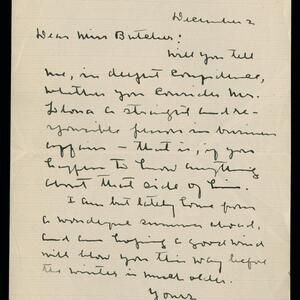 December 2
Dear Miss Butcher:
Will you tell
me, in deepest confidence,
whether you consider Mr.
a straight and re-
sponsible person in business
affairs – that is, if you
happen to know anything
about that side of him.
I am but lately home from
a wonderful summer abroad,
and am hoping a good wind
will blow you this way before
the winter is much older.
Yours